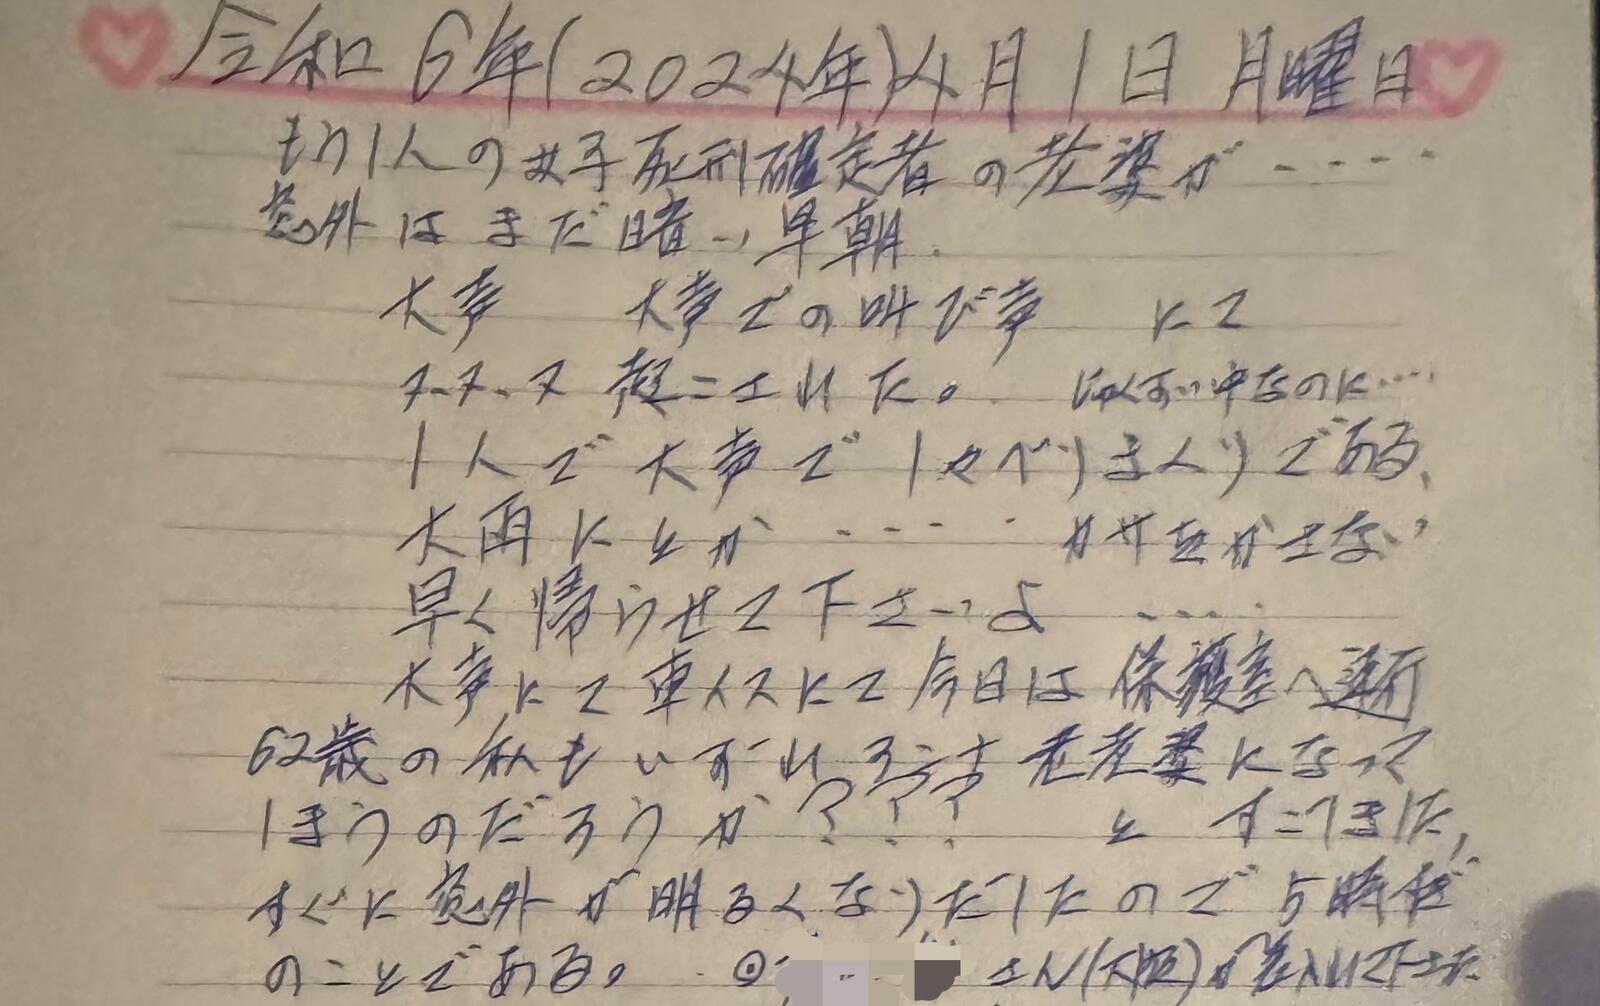 令和6年(2024年)4月1日 月曜日
もう1人の女子死刑確定者の老婆が‥‥
窓外はまだ暗い早朝.
大声 大声での叫び声 にて
ヌ・ヌ・ヌ 起こされた。 じゅくすい中なのに‥‥
1人で大声でしゃべりまくりである、
大雨にとか ‥‥ カサをかさない
早く帰らせて下さいよ ‥‥
大声にて車イスにて今日は保護室へ連行
62歳の私もいずれろうさ老老婆になって
しまうのだろうか??? と すこてました、
すぐに窓外が明るくなりだしたので5時だ
のことである。 ◎ さん(大阪)が差入れして下さった